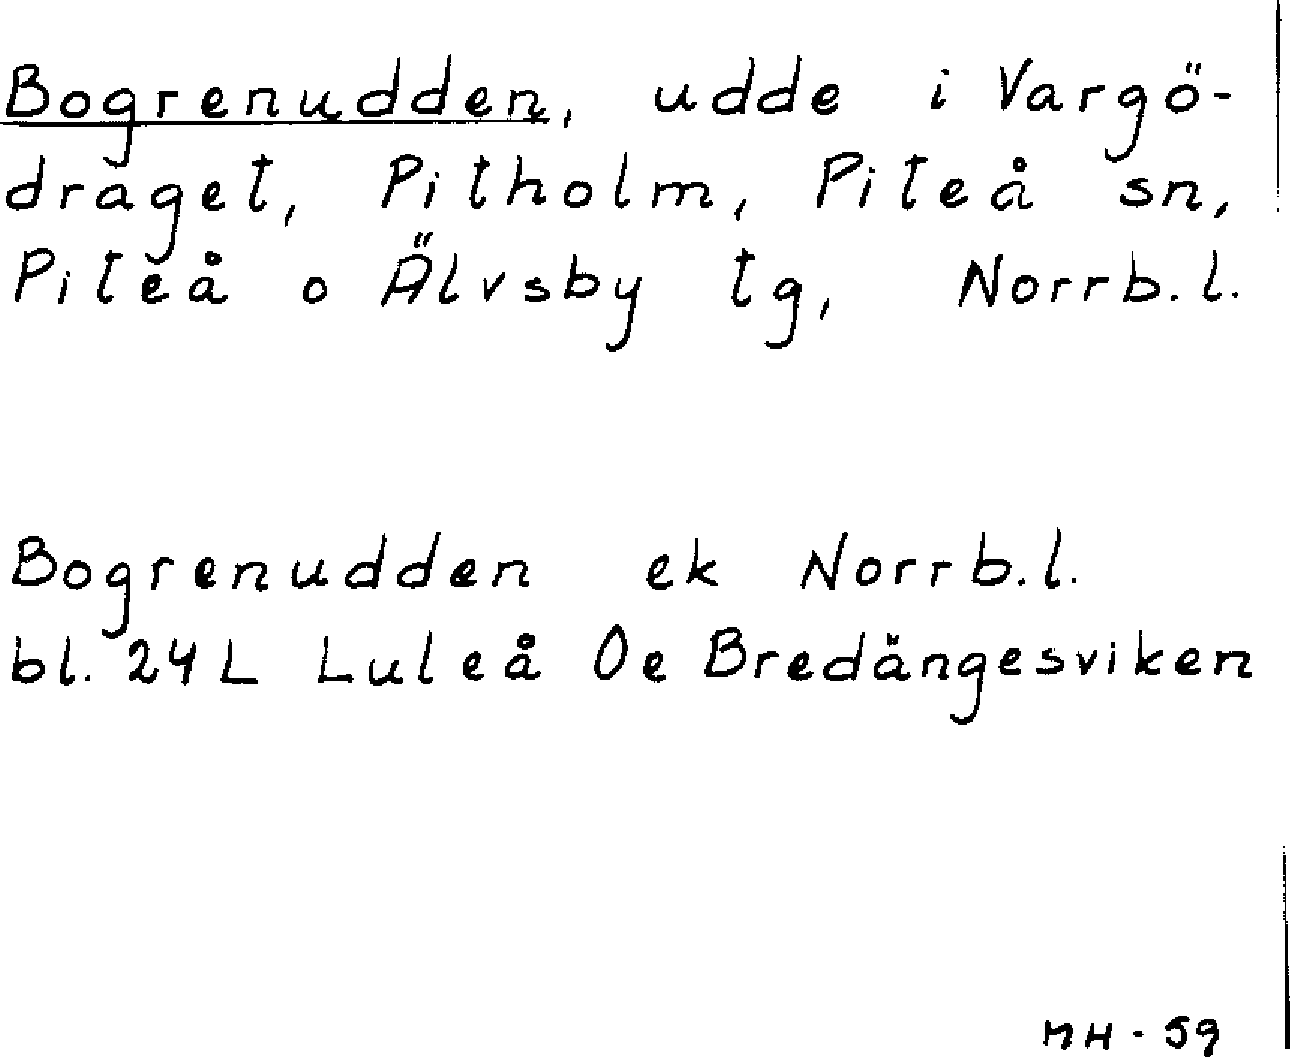 Bogrenudden, udde i Vargö-
draget, Pitholm, Piteå sn,
Piteå o Älvsby tg, Norrb.l.
Bogrenudden ek Norrb.l.
bl. 24 L Luleå 0e Bredängesviken
MH - 59